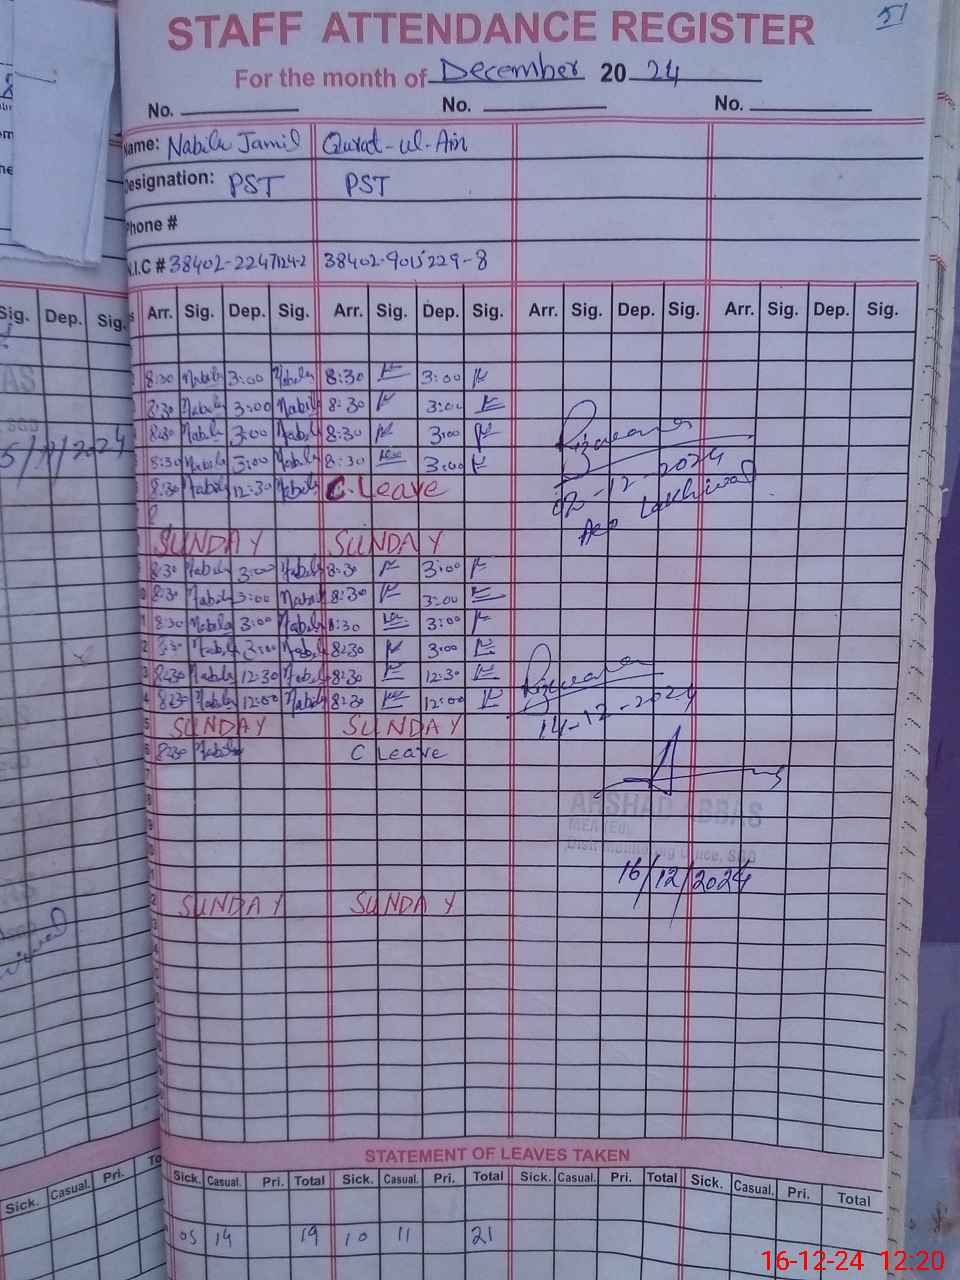 51
STAFF ATTENDANCE REGISTER
For the month of December 2024
No. No. No.
Name: Nabila Jamil Qurat-ul-Ain
Designation: PST PST
Phone #
N.I.C # 38402-2247124-2 38402-9015229-8
Arr. Sig. Dep. Sig. Arr. Sig. Dep. Sig. Arr. Sig. Dep. Sig. Arr. Sig. Dep. Sig.
8:30 Nabila 3:00 Nabila 8:30 3:00
8:30 Nabila 3:00 Nabila 8:30 3:00
8:30 Nabila 3:00 Nabila 8:30 3:00
8:30 Nabila 3:00 Nabila 8:30 3:00
8:30 Nabila 12:30 Nabila C. Leave
02-12-2024
AEO Lakhiwal
SUNDAY SUNDAY
8:30 Nabila 3:00 Nabila 8:30 3:00
8:30 Nabila 3:00 Nabila 8:30 3:00
8:30 Nabila 3:00 Nabila 8:30 3:00
8:30 Nabila 3:00 Nabila 8:30 3:00
8:30 Nabila 12:30 Nabila 8:30 12:30
8:30 Nabila 12:00 Nabila 8:30 12:00
14-12-2024
SUNDAY SUNDAY
8:30 Nabila C Leave
ARSHAD ABBAS
16/12/2024
SUNDAY SUNDAY
STATEMENT OF LEAVES TAKEN
Sick. Casual. Pri. Total Sick. Casual. Pri. Total Sick. Casual. Pri. Total Sick. Casual. Pri. Total
05 14 19 10 11 21
16-12-24 12:20